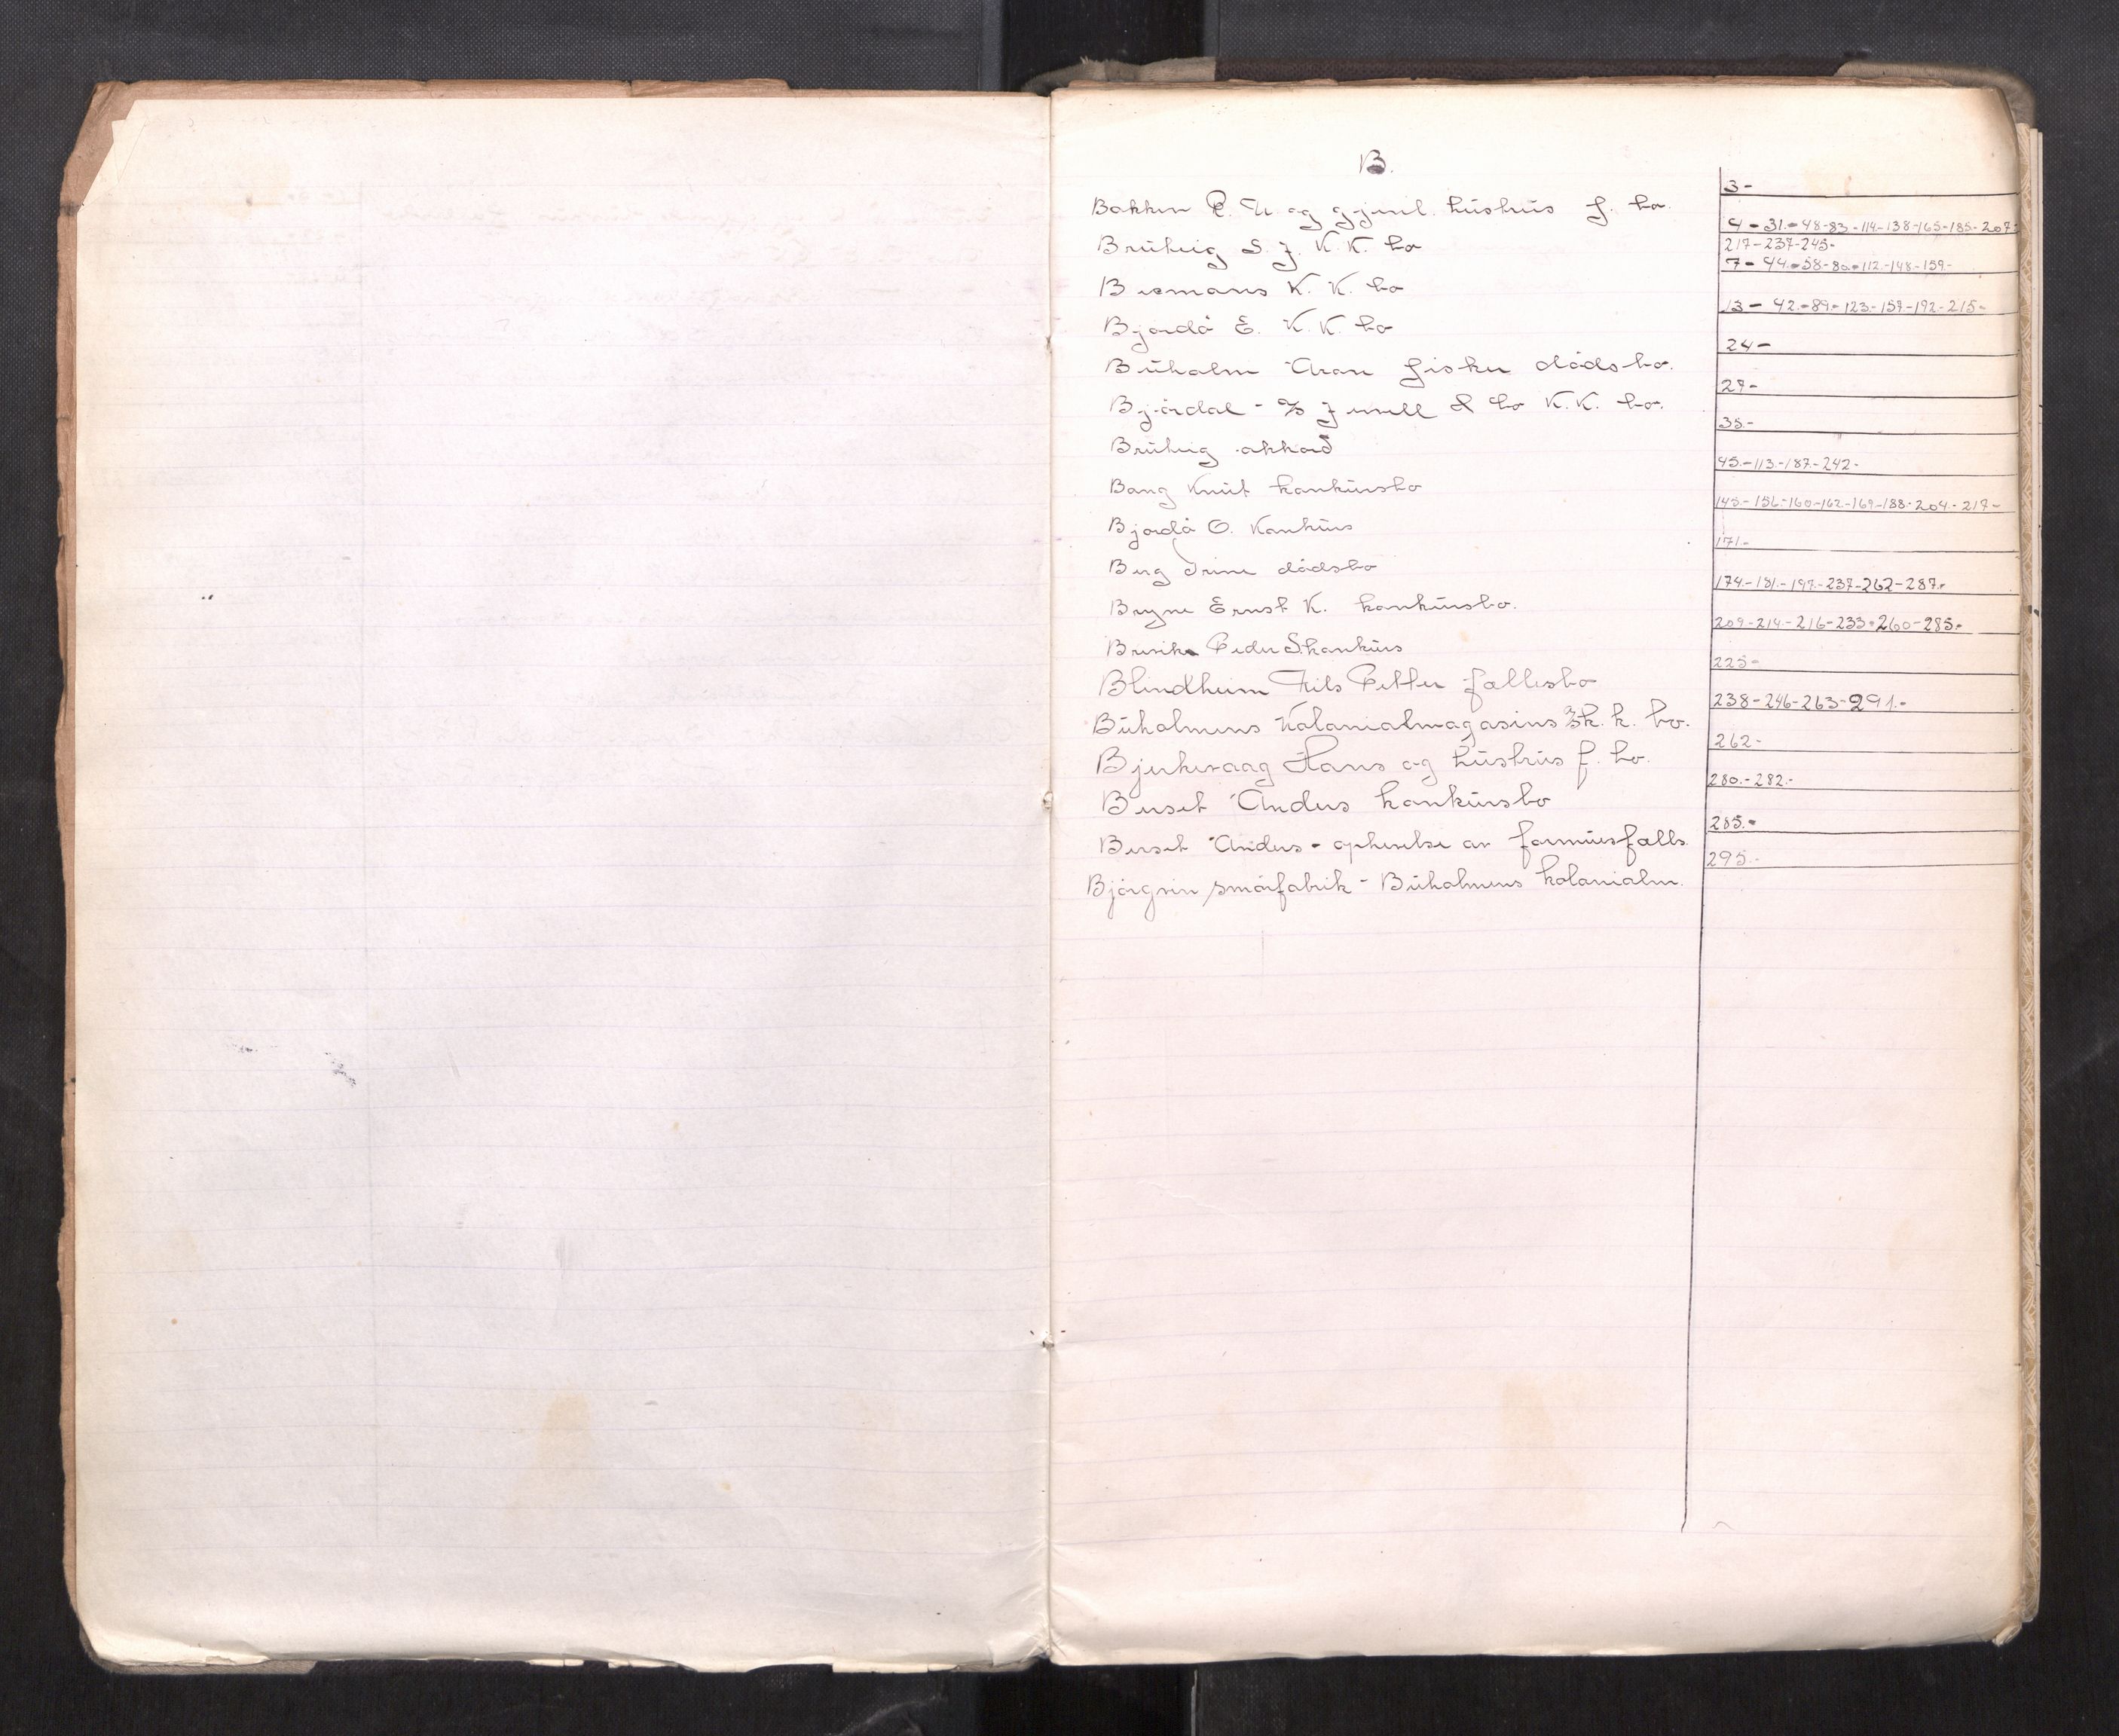 B.
Bakken P. N. og gjenl. hustrus f. bo. 3-
Brüheig S. J. K. K. bo 4-31-48-83-114-138-165-185-207-
217-237-245-
Bremans K. K. bo 7-44-58-80-112-148-159-
Bjordå E. K. K. bo 13-42-89-123-157-192-215-
Buholm Aron fisker dødsbo. 24-
Bjørdal - % Jewell & Co K.K. bo. 27-
Brüheig akkord 35-
Bang Knut konkursbo 45-113-187-242-
Bjordå O. Konkurs 145-156-160-162-169-188-204-217-
Berg Trine dødsbo 171.-
Bryne Ernst K. konkursbo. 174-181-197-237-262-287-
Brevik Peder S konkurs 209-214-216-233-260-285-
Blindheim Nils Petter fællesbo 225-
Buholmens Kolonialmagasins k. k. bo. 238-246-263-291.-
Bjerkevaag Hans og hustrus f. bo. 262-
Berset Anders konkursbo 280-282-
Berset Anders - ophevelse av formuesfælls. 285-
Bjørgvin smørfabrik - Buholmens kolonialm. 295-